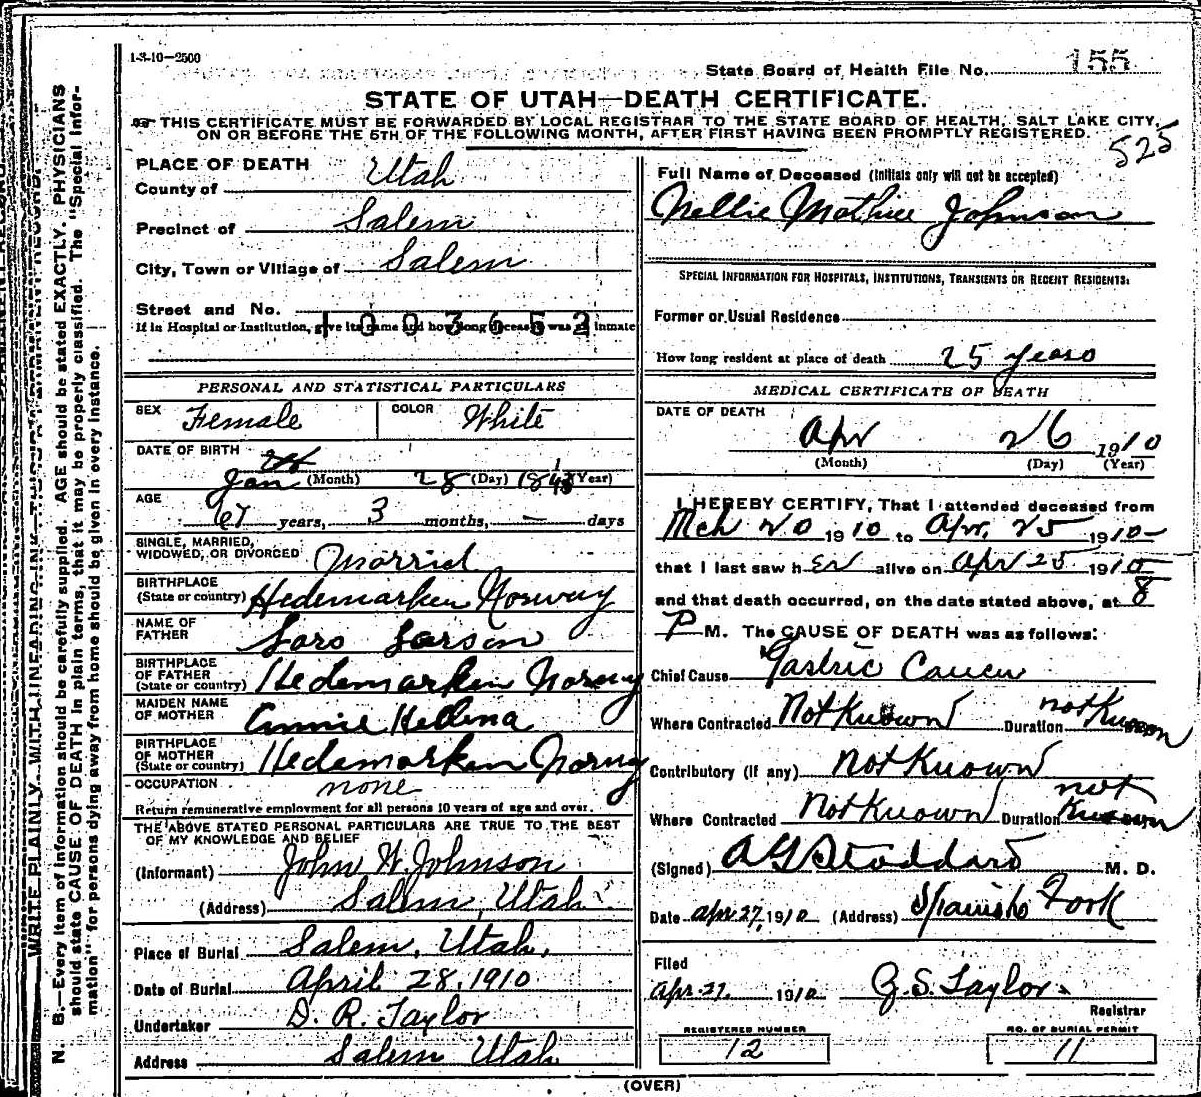 1-3-10—2500
State Board of Health File No. 155
STATE OF UTAH—DEATH CERTIFICATE.
THIS CERTIFICATE MUST BE FORWARDED BY LOCAL REGISTRAR TO THE STATE BOARD OF HEALTH, SALT LAKE CITY,
ON OR BEFORE THE 5TH OF THE FOLLOWING MONTH, AFTER FIRST HAVING BEEN PROMPTLY REGISTERED.
525
PLACE OF DEATH
County of Utah
Precinct of Salem
City, Town or Village of Salem
Street and No.
1003652
If in Hospital or Institution, give its name and how long deceased was an inmate
PERSONAL AND STATISTICAL PARTICULARS
SEX Female COLOR White
DATE OF BIRTH
Jan (Month) 28 (Day) 1843 (Year)
AGE
67 years, 3 months, — days
SINGLE, MARRIED,
WIDOWED, OR DIVORCED Married
BIRTHPLACE
(State or country) Hedemarken Norway
NAME OF
FATHER Lars Larson
BIRTHPLACE
OF FATHER
(State or country) Hedemarken Norway
MAIDEN NAME
OF MOTHER Annie Hellena
BIRTHPLACE
OF MOTHER
(State or country) Hedemarken Norway
OCCUPATION none
Return remunerative employment for all persons 10 years of age and over.
THE ABOVE STATED PERSONAL PARTICULARS ARE TRUE TO THE BEST
OF MY KNOWLEDGE AND BELIEF
(Informant) John W. Johnson
(Address) Salem, Utah
Place of Burial Salem, Utah,
Date of Burial April 28, 1910
Undertaker D. R. Taylor
Address Salem Utah
Full Name of Deceased (Initials only will not be accepted)
Nellie Mathiee Johnson
SPECIAL INFORMATION FOR HOSPITALS, INSTITUTIONS, TRANSIENTS OR RECENT RESIDENTS:
Former or Usual Residence
How long resident at place of death 25 years
MEDICAL CERTIFICATE OF DEATH
DATE OF DEATH
Apr 26 1910
(Month) (Day) (Year)
I HEREBY CERTIFY, That I attended deceased from
Mch 20 1910 to Apr. 25 1910
that I last saw her alive on Apr 25 1910
and that death occurred, on the date stated above, at 8
P M. The CAUSE OF DEATH was as follows:
Chief Cause Gastric Cancer
Where Contracted Not Known Duration not Known
Contributory (if any) Not Known
Where Contracted Not Known Duration not Known
(Signed) A G Stoddard M. D.
Date Apr 27, 1910 (Address) Spanish Fork
Filed
Apr. 27. 1910 G. S. Taylor.
Registrar
REGISTERED NUMBER
12
NO. OF BURIAL PERMIT
11
(OVER)
WRITE PLAINLY WITH UNFADING INK—THIS IS A PERMANENT RECORD.
N. B.—Every item of information should be carefully supplied. AGE should be stated EXACTLY. PHYSICIANS
should state CAUSE OF DEATH in plain terms, that it may be properly classified. The "Special Infor-
mation" for persons dying away from home should be given in every instance.